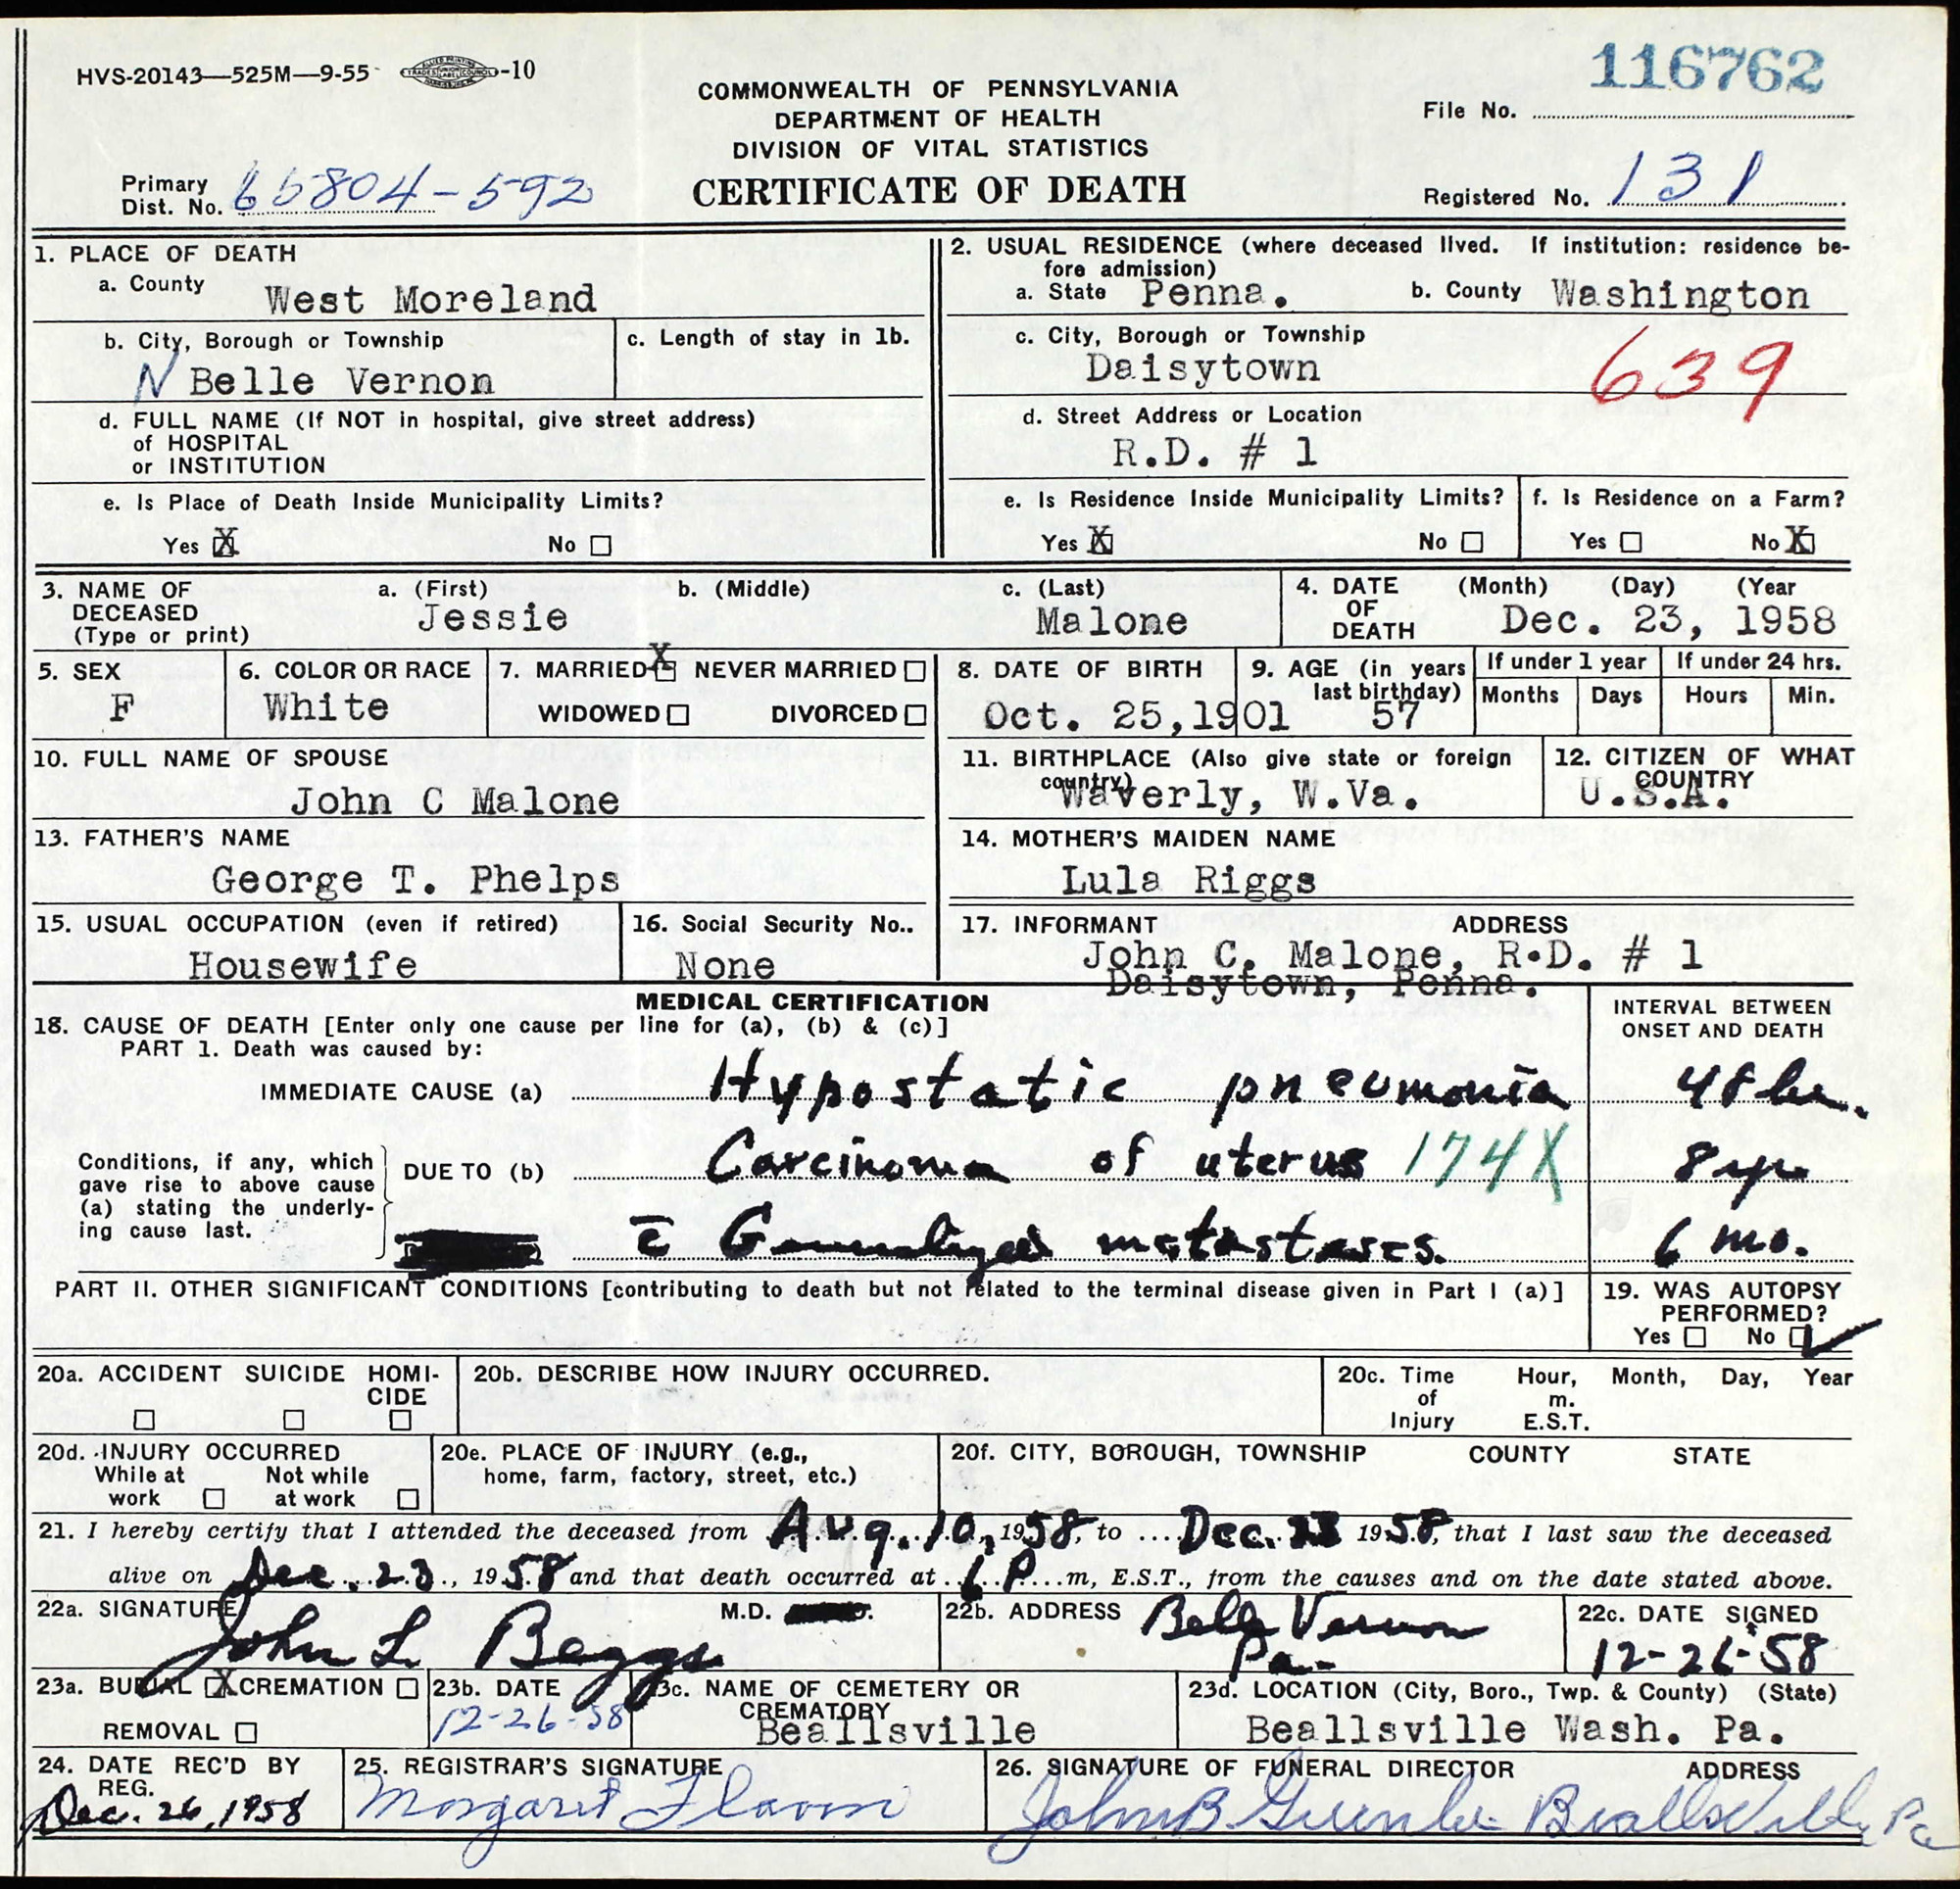 HVS-20143—525M—9-55 -10
116762
COMMONWEALTH OF PENNSYLVANIA
DEPARTMENT OF HEALTH
DIVISION OF VITAL STATISTICS
CERTIFICATE OF DEATH
File No.
Primary
Dist. No. 65804-592
Registered No. 131
1. PLACE OF DEATH
a. County West Moreland
b. City, Borough or Township
N Belle Vernon
c. Length of stay in 1b.
d. FULL NAME (If NOT in hospital, give street address)
of HOSPITAL
or INSTITUTION
e. Is Place of Death Inside Municipality Limits?
Yes X No
2. USUAL RESIDENCE (where deceased lived. If institution: residence be-
fore admission)
a. State Penna. b. County Washington
c. City, Borough or Township
Daisytown
639
d. Street Address or Location
R.D. # 1
e. Is Residence Inside Municipality Limits?
Yes X No
f. Is Residence on a Farm?
Yes No X
3. NAME OF
DECEASED
(Type or print)
a. (First) b. (Middle) c. (Last)
Jessie Malone
4. DATE
OF
DEATH
(Month) (Day) (Year
Dec. 23, 1958
5. SEX
F
6. COLOR OR RACE
White
7. MARRIED X NEVER MARRIED
WIDOWED DIVORCED
8. DATE OF BIRTH
Oct. 25,1901
9. AGE (in years
last birthday)
57
If under 1 year
Months Days
If under 24 hrs.
Hours Min.
10. FULL NAME OF SPOUSE
John C Malone
11. BIRTHPLACE (Also give state or foreign
country)
Waverly, W.Va.
12. CITIZEN OF WHAT
COUNTRY
U.S.A.
13. FATHER'S NAME
George T. Phelps
14. MOTHER'S MAIDEN NAME
Lula Riggs
15. USUAL OCCUPATION (even if retired)
Housewife
16. Social Security No..
None
17. INFORMANT ADDRESS
John C. Malone, R.D. # 1
Daisytown, Penna.
MEDICAL CERTIFICATION
18. CAUSE OF DEATH [Enter only one cause per line for (a), (b) & (c)]
PART 1. Death was caused by:
INTERVAL BETWEEN
ONSET AND DEATH
IMMEDIATE CAUSE (a) Hypostatic pneumonia 48 hr.
Conditions, if any, which
gave rise to above cause
(a) stating the underly-
ing cause last.
DUE TO (b) Carcinoma of uterus 174X 8 yr
c̄ Generalized metastases. 6 mo.
PART II. OTHER SIGNIFICANT CONDITIONS [contributing to death but not related to the terminal disease given in Part I (a)]
19. WAS AUTOPSY
PERFORMED?
Yes No ✓
20a. ACCIDENT SUICIDE HOMI-
CIDE
20b. DESCRIBE HOW INJURY OCCURRED.
20c. Time
of
Injury
Hour, Month, Day, Year
m.
E.S.T.
20d. INJURY OCCURRED
While at Not while
work at work
20e. PLACE OF INJURY (e.g.,
home, farm, factory, street, etc.)
20f. CITY, BOROUGH, TOWNSHIP COUNTY STATE
21. I hereby certify that I attended the deceased from Aug. 10, 1958, to Dec. 23 1958, that I last saw the deceased
alive on Dec. 23, 1958 and that death occurred at 6 P m, E.S.T., from the causes and on the date stated above.
22a. SIGNATURE M.D.
John L. Beggs
22b. ADDRESS Belle Vernon
Pa.
22c. DATE SIGNED
12-26-58
23a. BURIAL X CREMATION
REMOVAL
23b. DATE
12-26-58
23c. NAME OF CEMETERY OR
CREMATORY
Beallsville
23d. LOCATION (City, Boro., Twp. & County) (State)
Beallsville Wash. Pa.
24. DATE REC'D BY
REG.
Dec. 26, 1958
25. REGISTRAR'S SIGNATURE
Margaret Flavin
26. SIGNATURE OF FUNERAL DIRECTOR ADDRESS
John B. Beallsville, Pa